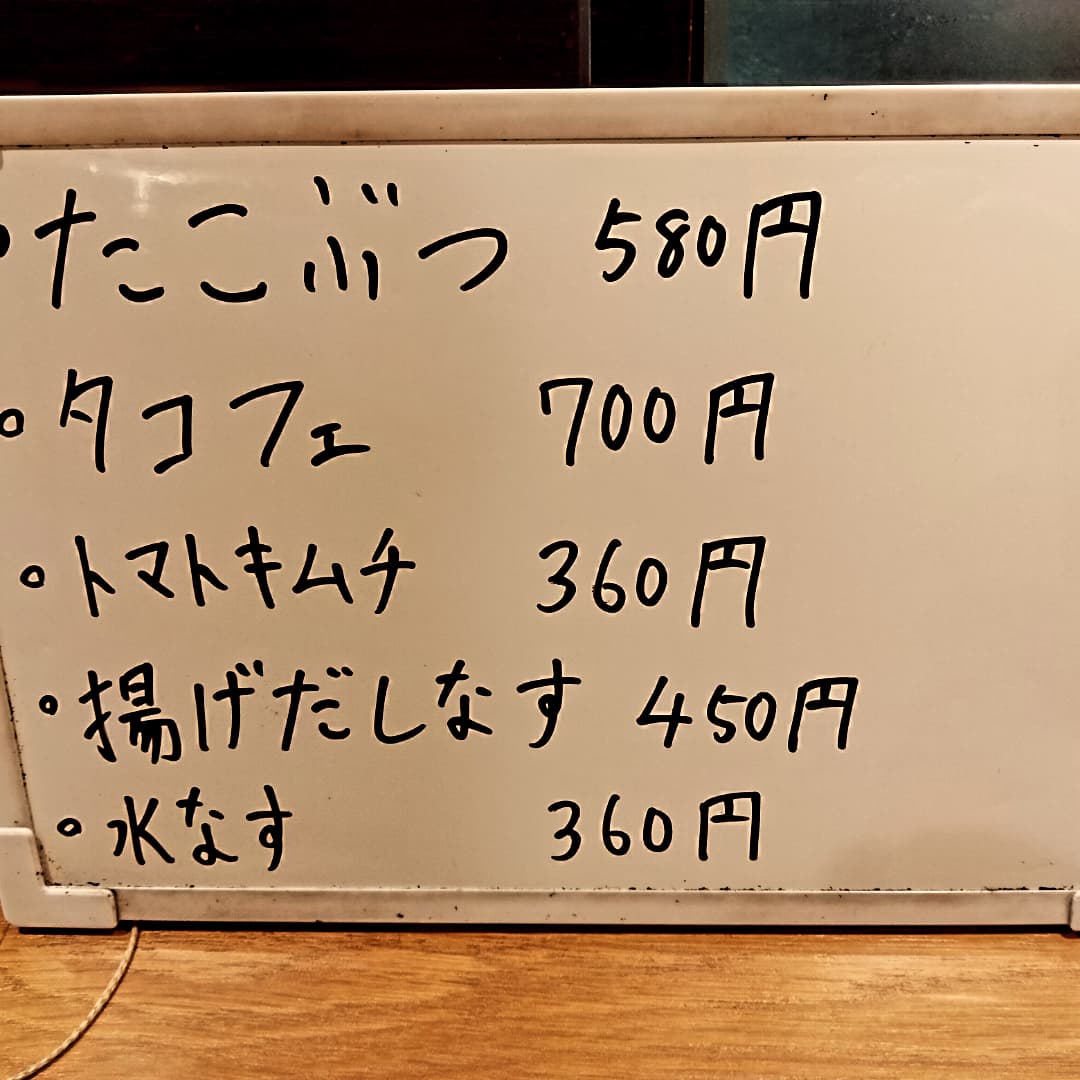 ・たこぶつ 580円
・タコフェ 700円
・トマトキムチ 360円
・揚げだしなす 450円
・水なす 360円